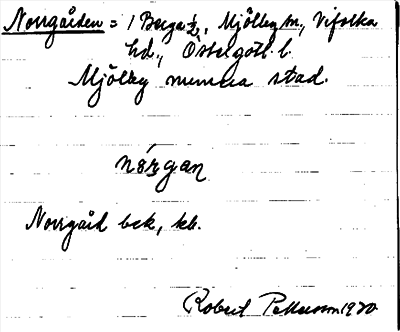 Norrgården = 1 Berga ½, Mjölby sn., Vifolka
hd., Östergötl. l.
Mjölby numera stad.
nórgan
Norrgård bek, kb.
Robert Petterson 1920